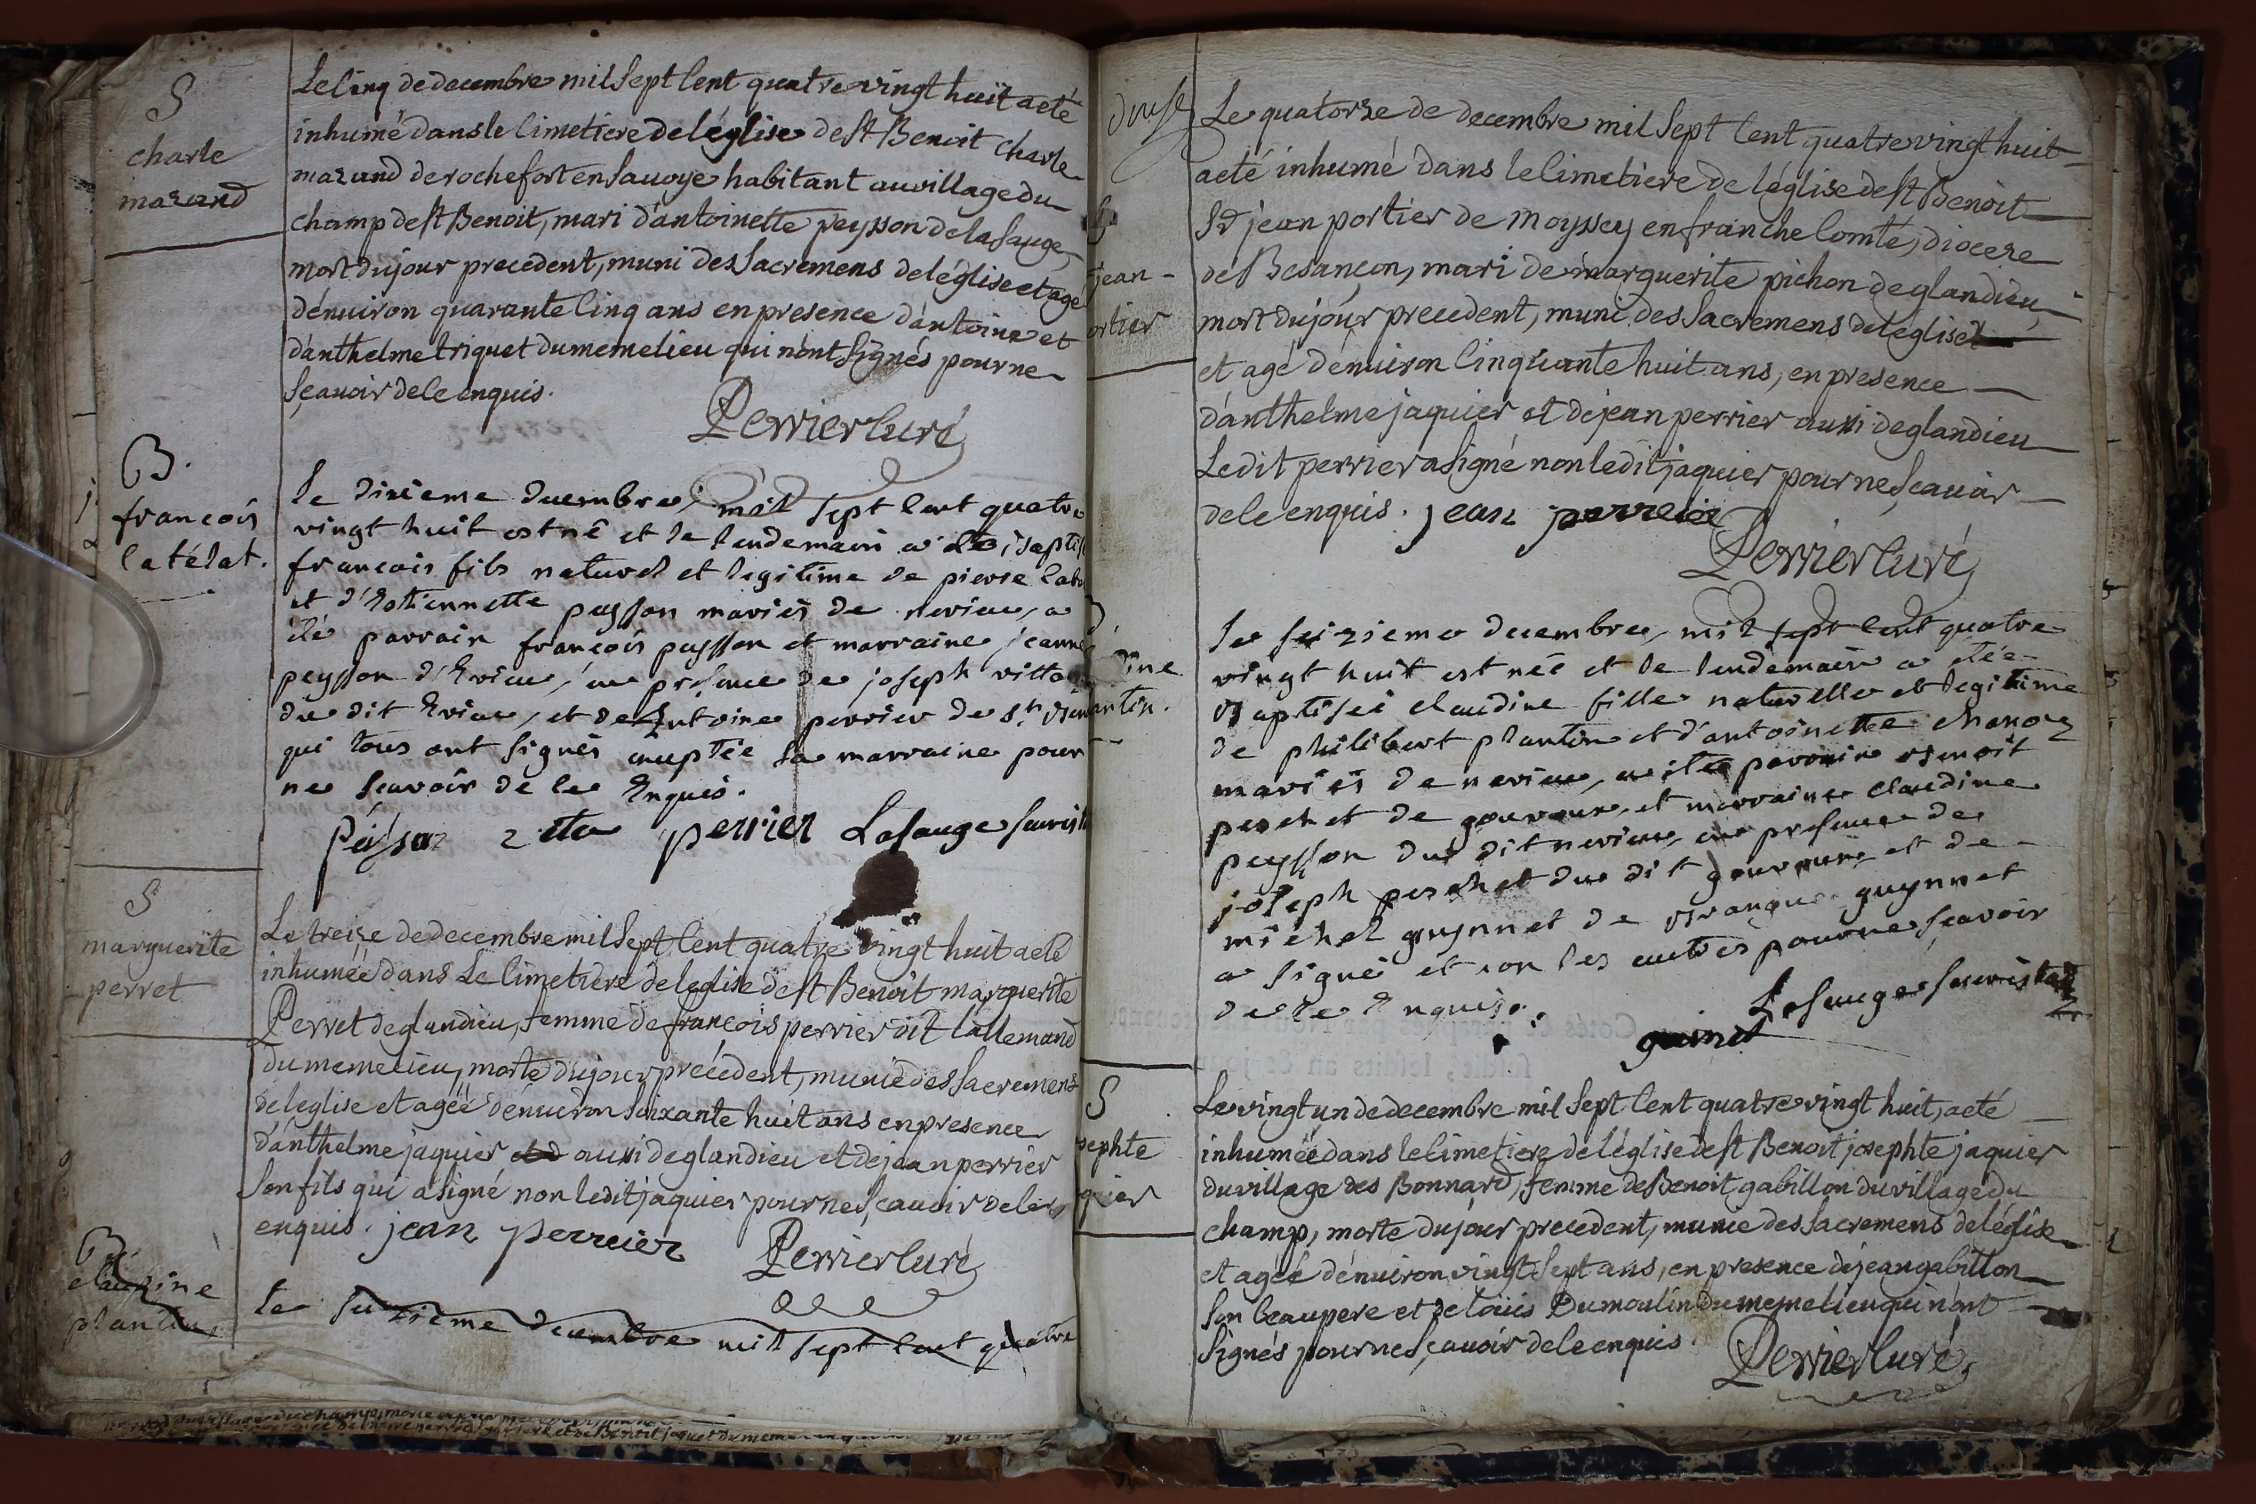 S
charle
mazand
Le cinq de decembre mil sept cent quatre vingt huit a eté
inhumé dans le cimetiere de l'église de st Benoit charle
mazand de rochefort en savoye habitant au village du
champ de st Benoit, mari d'antoinette peysson de la sauge,
mort du jour precedent, muni des sacremens de l'église et agé
d'enuiron quarante cinq ans en presence d'antoine et
d'anthelme triquet du meme lieu qui n'ont signés pour ne
sçauoir de ce enquis.
Perrier curé
B.
francois
catélat.
le dixieme decembre, mil sept cent quatre
vingt huit est né et le lendemain a été baptisé
francois fils naturel et legitime de pierre
et d'Estiennette peysson mariés de nerieu, a
été parrain françois peysson et marraine jeanne
peysson d'Evieu, en presence de joseph
du dit Evieu, et de Antoine perrier de st
qui tous ont signés exceptée la marraine pour
ne scavoir de ce Enquis.
péison perrier Lasauge
S
marguerite
perret
Le treize de decembre mil sept cent quatre vingt huit a eté
inhumée dans Le cimetiere de l'eglise de st Benoit marguerite
Perret de glandieu, femme de francois perrier dit lallemand
du meme lieu, morte du jour précédent, munie des sacremens
de l'eglise et agée d'enuiron soixante huit ans en presence
d'anthelme jaquier aussi de glandieu et de jean perrier
son fils qui a signé non ledit jaquier pour ne sçauoir de ce
enquis. jean perreier Perrier curé
B
claudine
plantin
le seizieme decembre mil sept cent quatre
douze
jean
ortier
Le quatorze de decembre mil sept cent quatre vingt huit
a eté inhumé dans le cimetiere de l'église de st Benoit
Sr jean portier de moyssey en franche comté, diocese
de Besançon, mari de marguerite pichon de glandieu,
mort du jour precedent, muni des sacremens de l'eglise
et agé d'enuiron cinquante huit ans, en presence
d'anthelme jaquier et de jean perrier aussi de glandieu
Ledit perrier a signé non ledit jaquier pour ne sçauoir
de ce enquis. jean perreier
Perrier curé
ine
antin.
le seizieme decembre, mil sept cent quatre
vingt huit est née et le lendemain a étée
Baptisée claudine fille naturelle et legitime
de philibert plantin et d'antoinette chanoz
mariés de nerieu, a été parrain Benoit
de et marraine claudine
peysson du dit nerieu, en presence de
joseph du dit et de
michel guynnet de Brangue guynnet
a signé et non les autres pour ne scavoir
de ce Enquis.
Lasauge
guinet
S
sephte
quier
Le vingt un de decembre mil sept cent quatre vingt huit, a eté
inhumée dans le cimetiere de l'église de st Benoit josephte jaquier
du village des Bonnard, femme de Benoit gabillon du village du
champ, morte du jour precedent, munie des sacremens de l'église
et agée d'enuiron vingt sept ans, en presence de jean gabillon
son beaupere et de louis Dumoulin du meme lieu qui n'ont
signés pour ne sçauoir de ce enquis.
Perrier curé